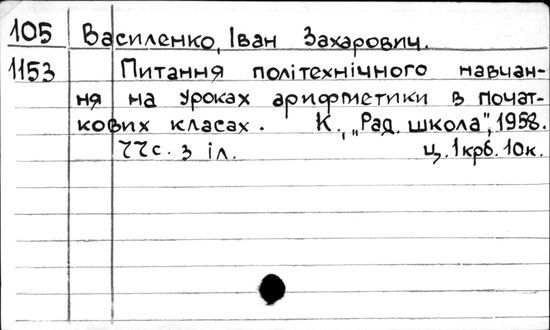 105 Василенко, Іван Захарович.
1153 Питання політехнічного навчан-
ня на уроках арифметики в почат-
кових класах. К., „Рад. школа", 1958.
77с. з іл. ц. 1 крб. 10к.